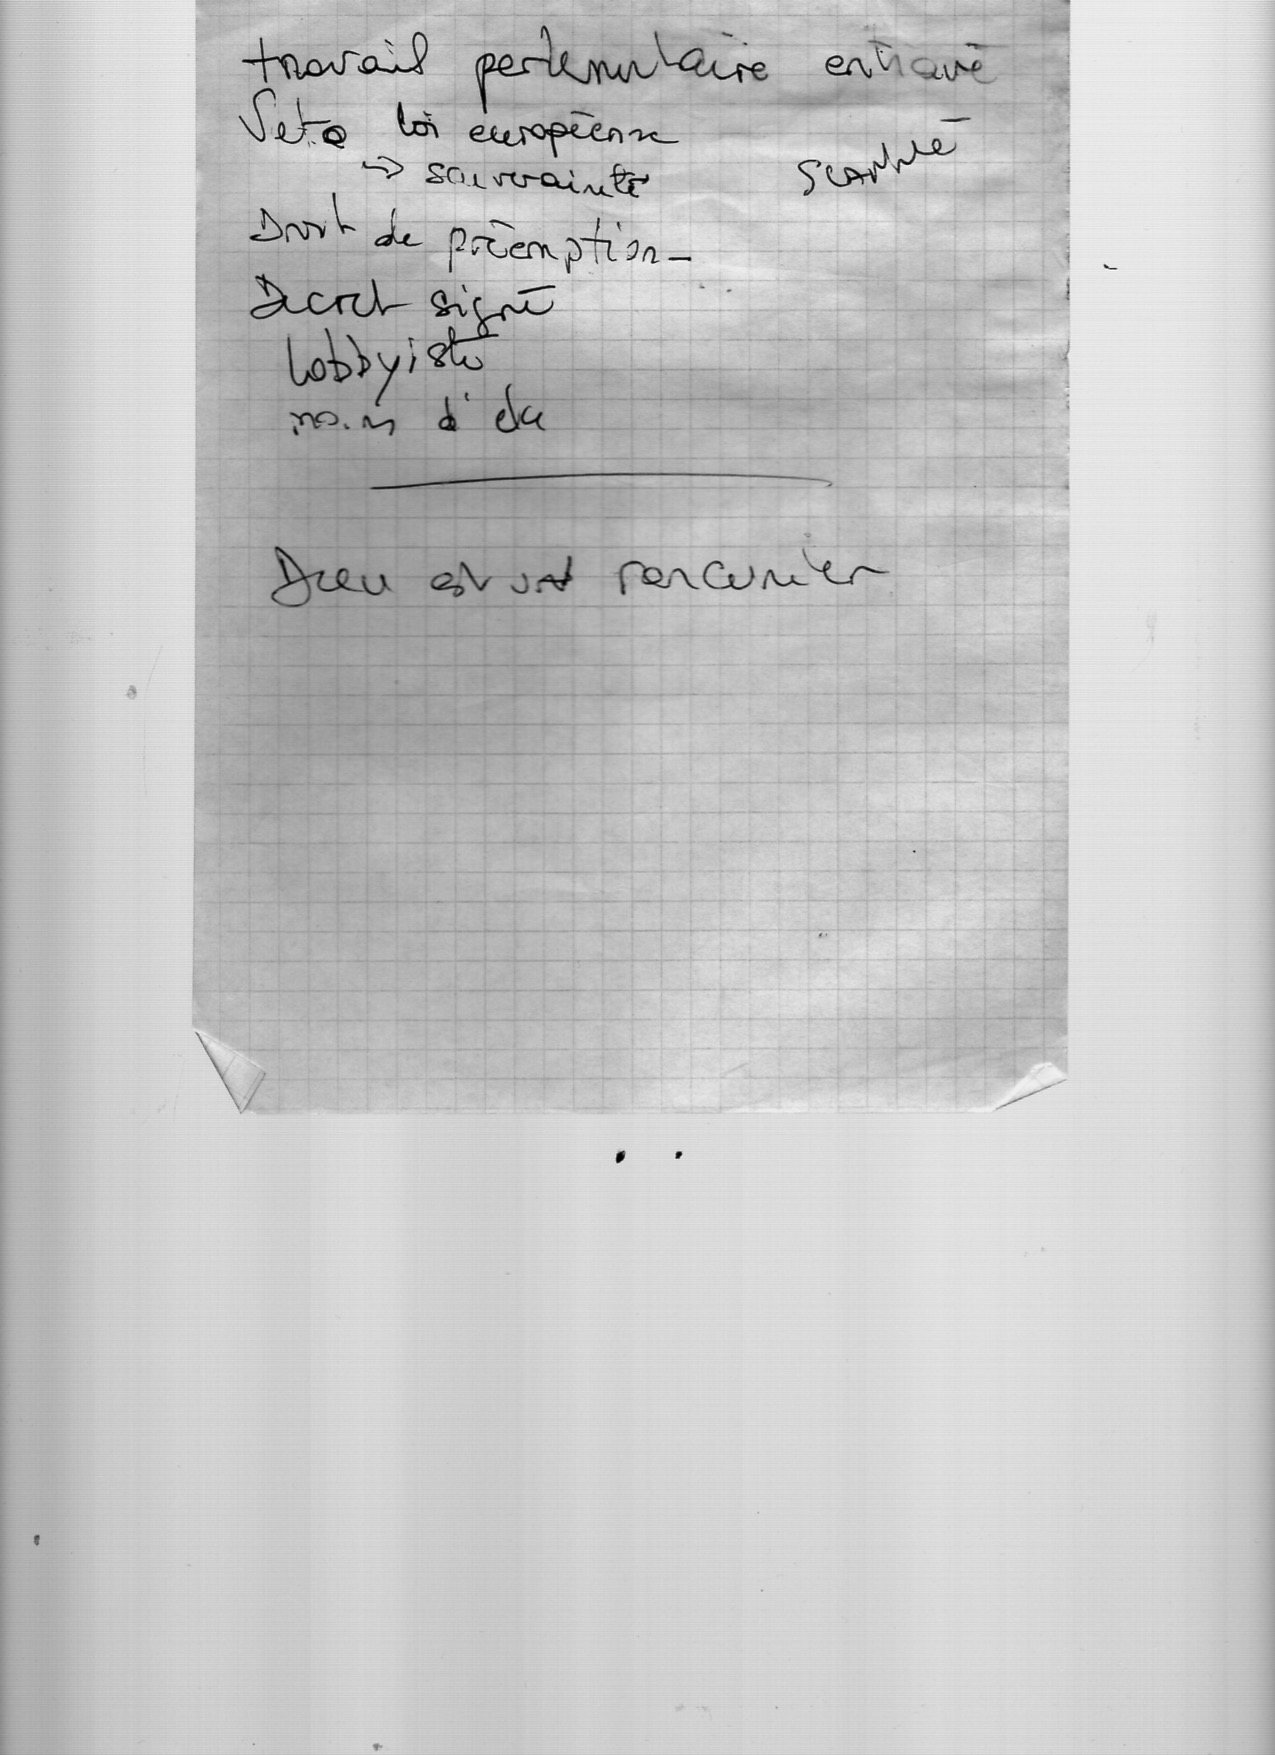 travail parlementaire entravé
Veto loi européenne
→ souveraineté
Droit de préemption -
Decret signé
Lobbyiste
moins d'elu
Dieu est rancunier